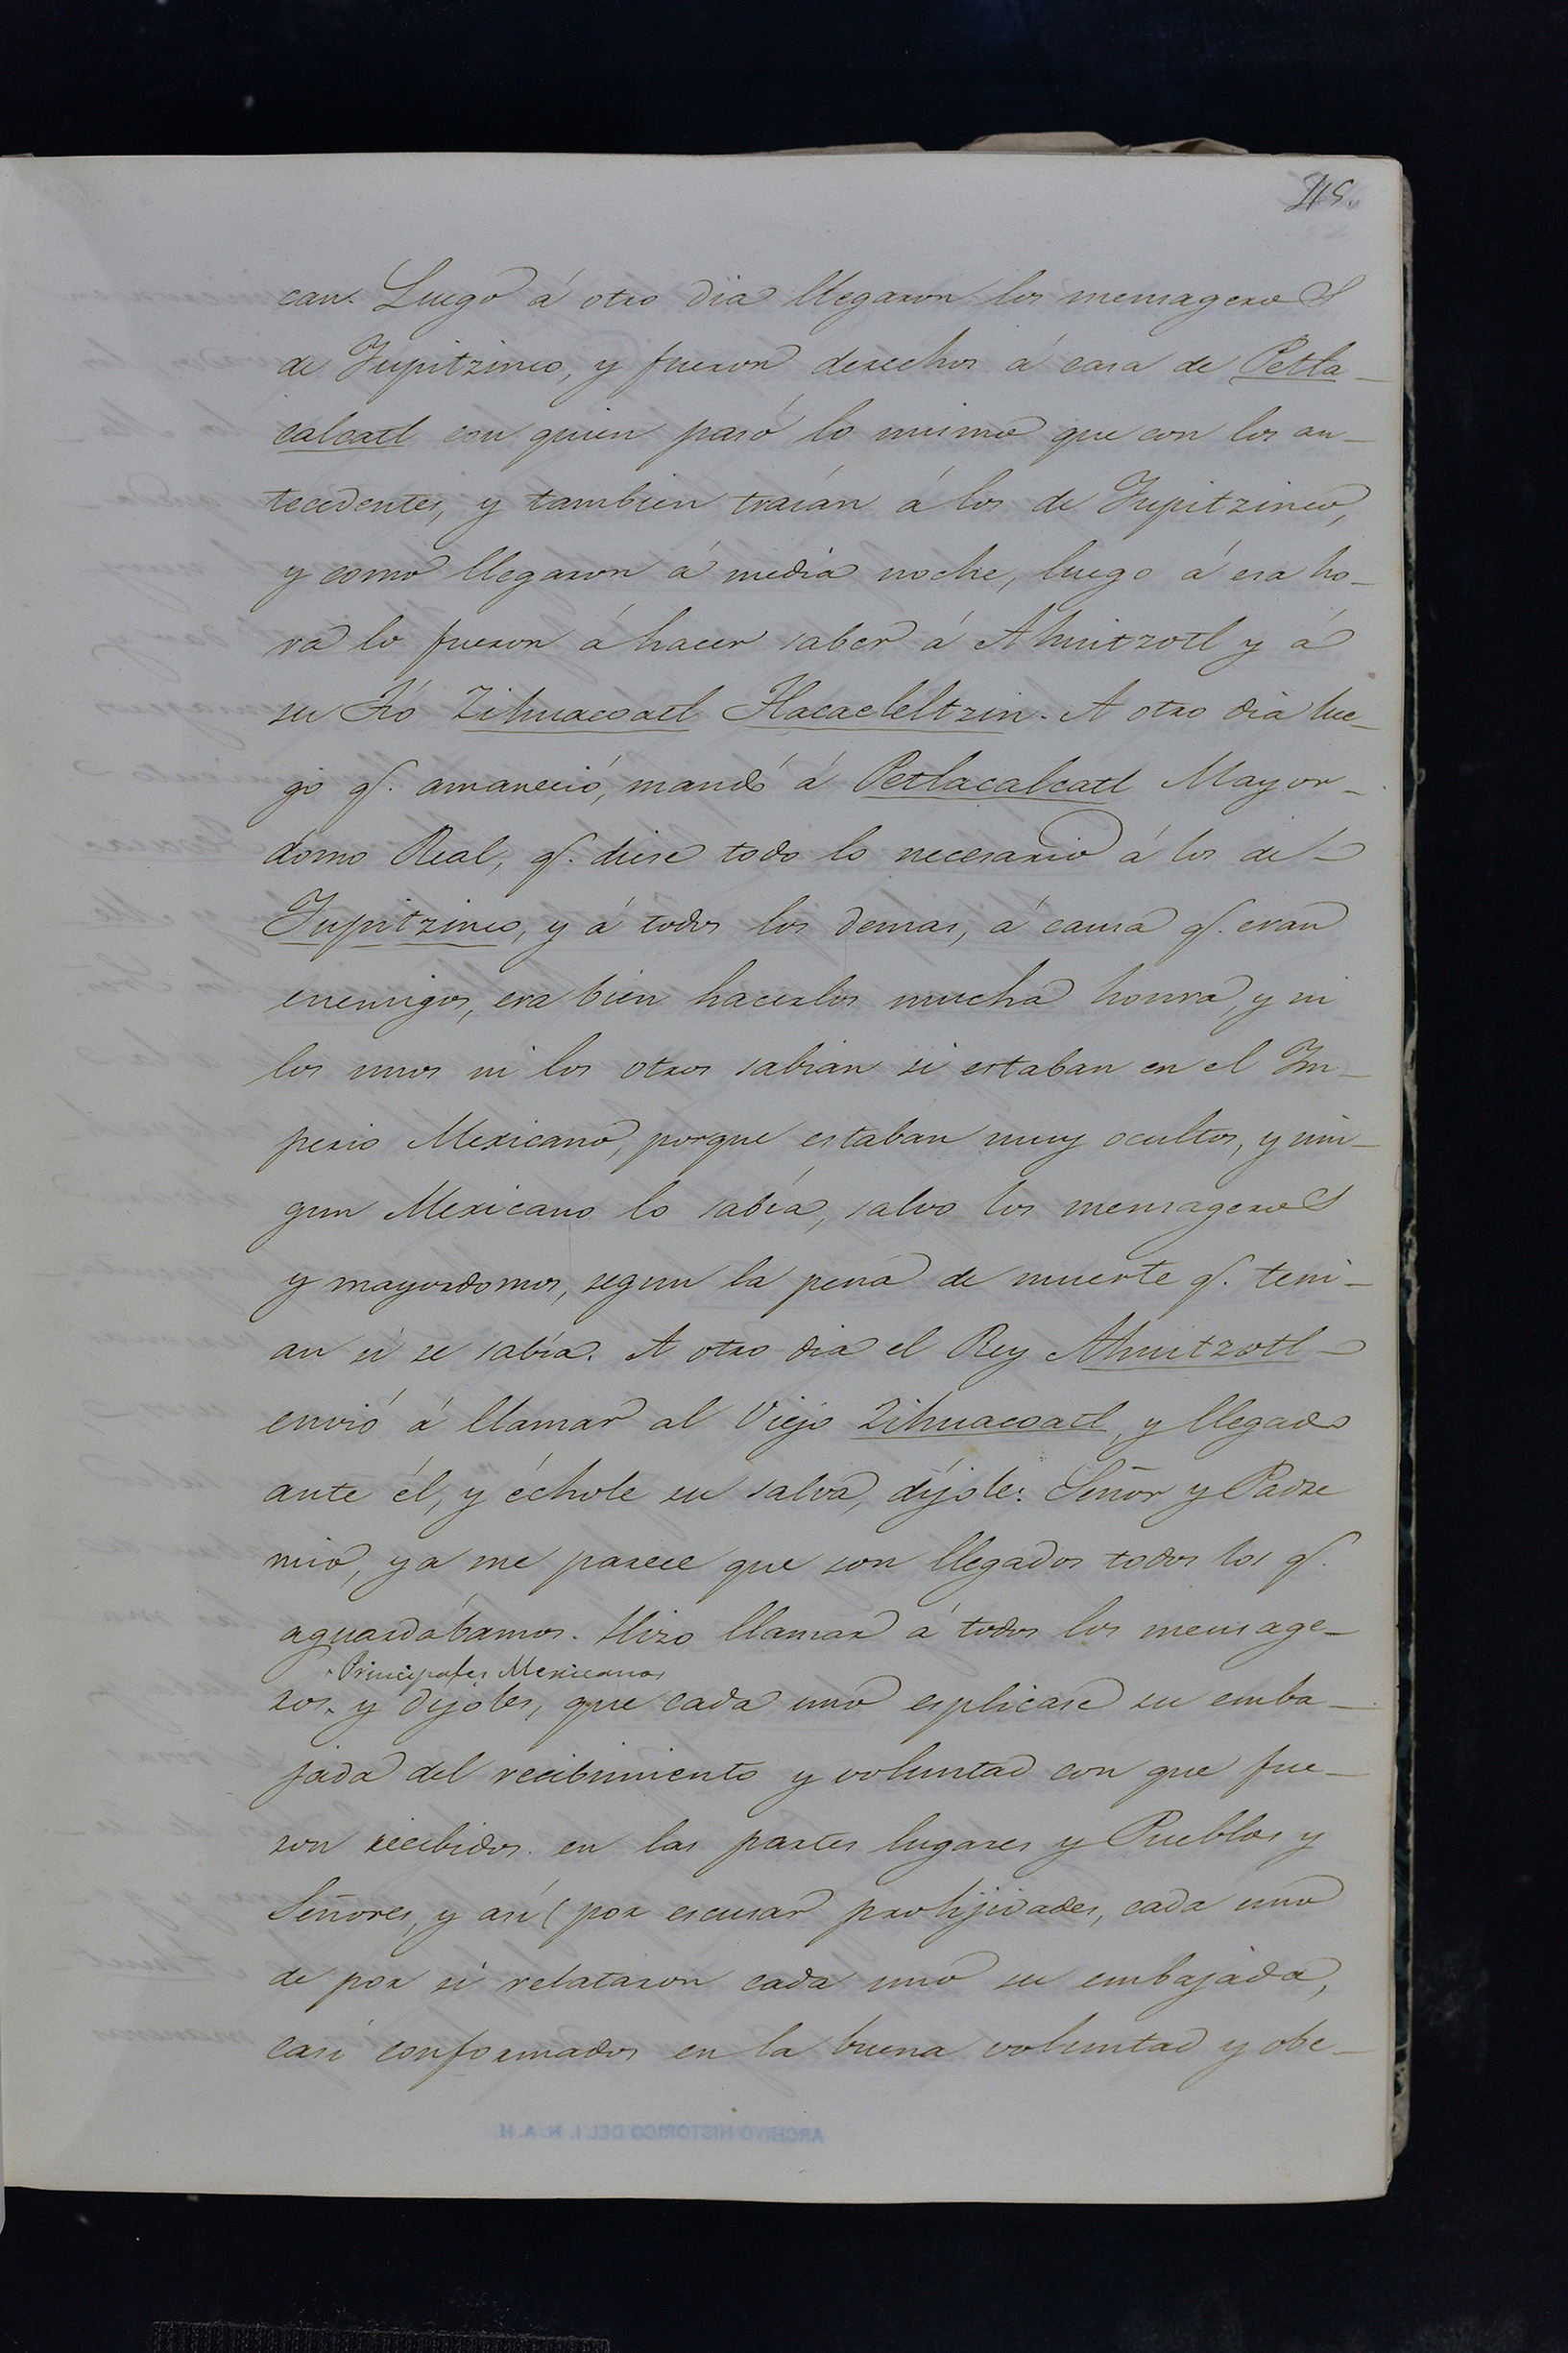 415.
can. Luego á otro dia llegaron los mensageros
de Yupitzinco, y fueron derechos á casa de Petla-
calcatl con quien pasó lo mismo que con los an-
tecedentes, y tambien traían á los de Yupitzinco,
y como llegaron á media noche, luego á esa ho-
ra lo fueron á hacer saber á Ahuitzotl y á
su tío Zihuacoatl Tlacaeleltzin. A otro dia lue-
go q. amaneció, mandó á Petlacalcatl Mayor-
domo Real, q. diese todo lo necesario á los de
Yupitzinco, y á todos los demas, á causa q. eran
enemigos, era bien hacerlos mucha honra, y ni
los unos ni los otros sabian si estaban en el Im-
perio Mexicano, porque estaban muy ocultos, y nin-
gun Mexicano lo sabía, salvo los mensageros
y mayordomos, segun la pena de muerte q. teni-
an si se sabía. A otro dia el Rey Ahuitzotl
envió á llamar al Viejo Zihuacoatl, y llegado
ante él, y échole su salva, díjole: Señor y Padre
mio, ya me parece que son llegados todos los q.
aguardábamos. Hizo llamar á todos los mensage-
Principales Mexicanos
ros y dijoles, que cada uno esplicase su emba-
jada del recibimiento y voluntad con que fue-
ron recibidos en las partes lugares y Pueblos y
Señores, y así (por escusar prolijidades, cada uno
de por sí relataron cada uno su embajada,
casi conformados en la buena voluntad y obe-
ARCHIVO HISTORICO DEL I. N. A. H.